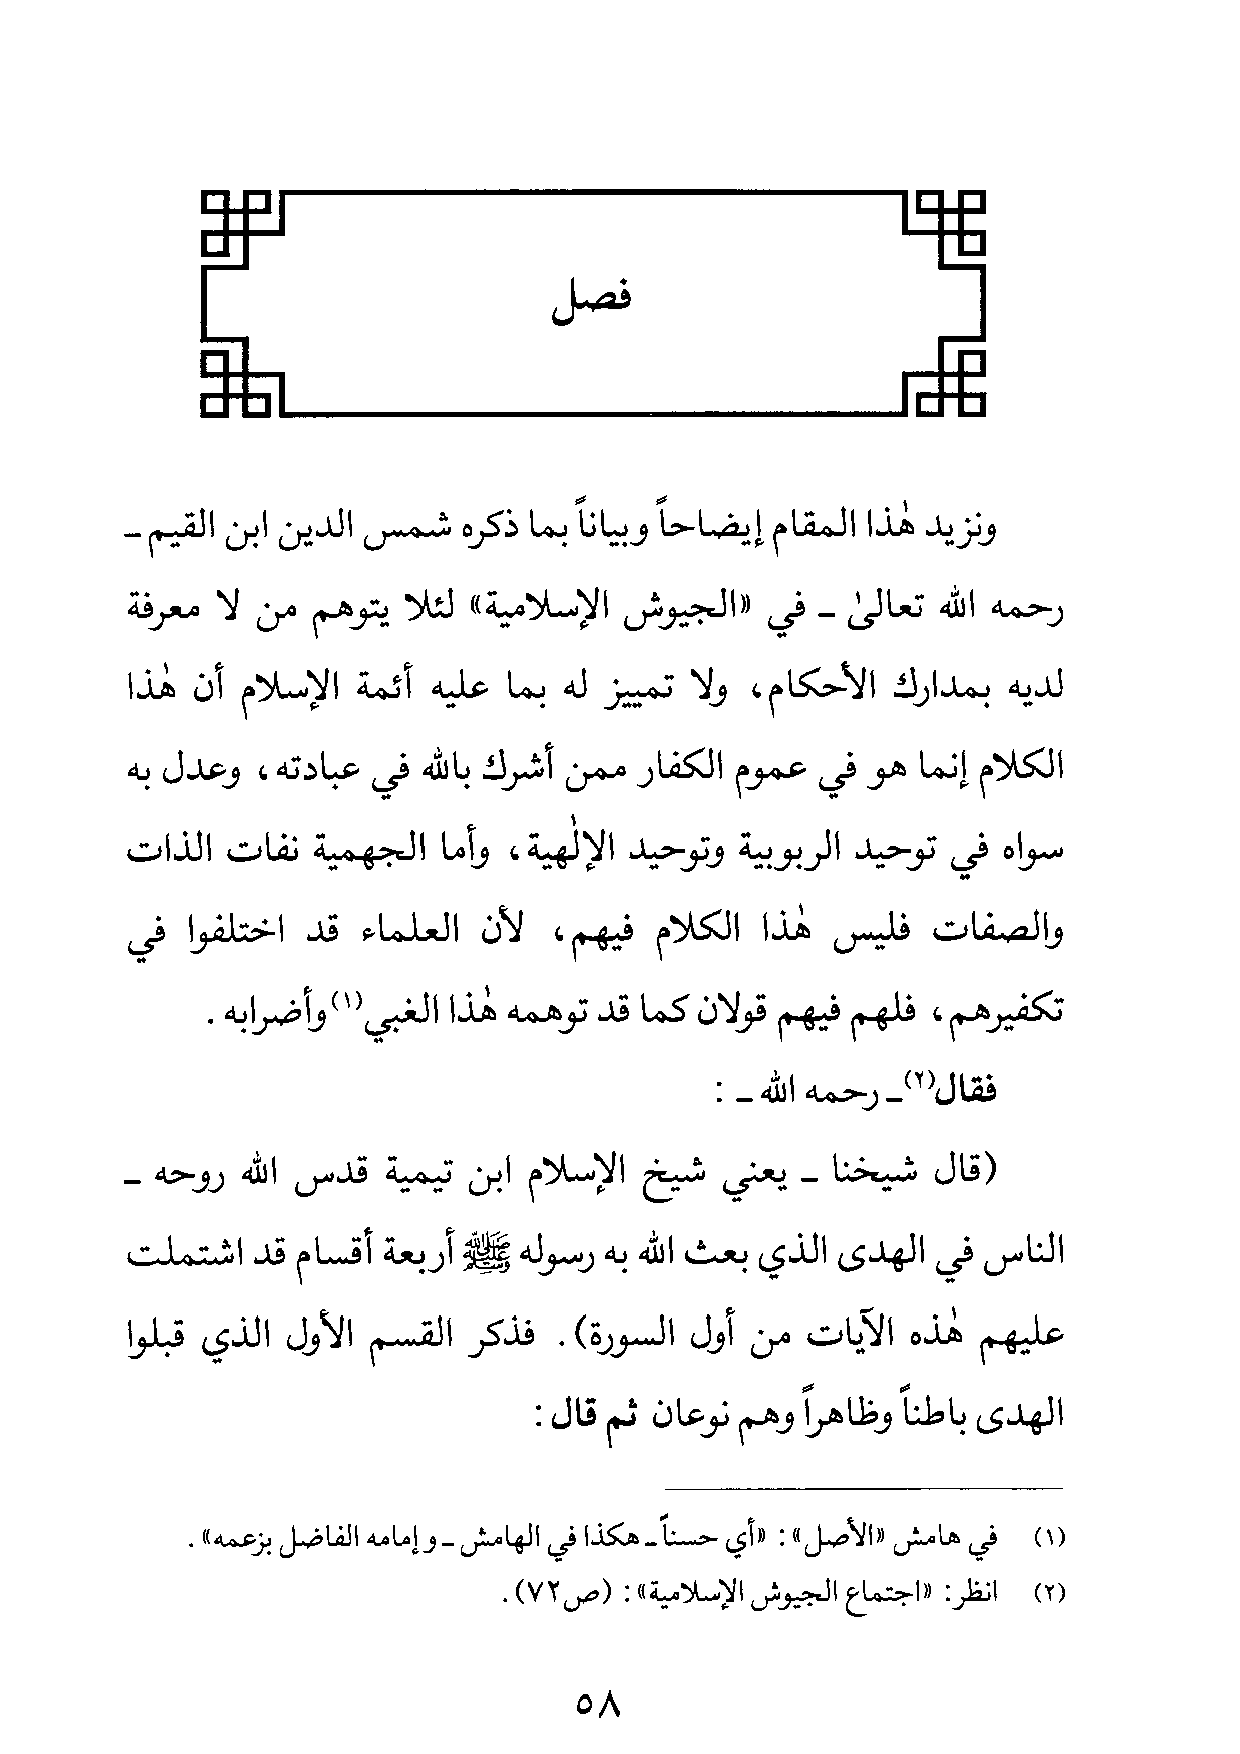 فصل
ونزيد هٰذا المقام إيضاحاً وبياناً بما ذكره شمس الدين ابن القيم ـ
رحمه الله تعالىٰ ـ في «الجيوش الإسلامية» لئلا يتوهم من لا معرفة
لديه بمدارك الأحكام، ولا تمييز له بما عليه أئمة الإسلام أن هٰذا
الكلام إنما هو في عموم الكفار ممن أشرك بالله في عبادته، وعدل به
سواه في توحيد الربوبية وتوحيد الإلٰهية، وأما الجهمية نفات الذات
والصفات فليس هٰذا الكلام فيهم، لأن العلماء قد اختلفوا في
تكفيرهم، فلهم فيهم قولان كما قد توهمه هٰذا الغبي(١) وأضرابه.
فقال(٢) ـ رحمه الله ـ :
(قال شيخنا ـ يعني شيخ الإسلام ابن تيمية قدس الله روحه ـ
الناس في الهدى الذي بعث الله به رسوله ﷺ أربعة أقسام قد اشتملت
عليهم هٰذه الآيات من أول السورة). فذكر القسم الأول الذي قبلوا
الهدى باطناً وظاهراً وهم نوعان ثم قال:
(١) في هامش «الأصل»: «أي حسناً ـ هكذا في الهامش ـ و إمامه الفاضل بزعمه».
(٢) انظر: «اجتماع الجيوش الإسلامية»: (ص٧٢).
٥٨